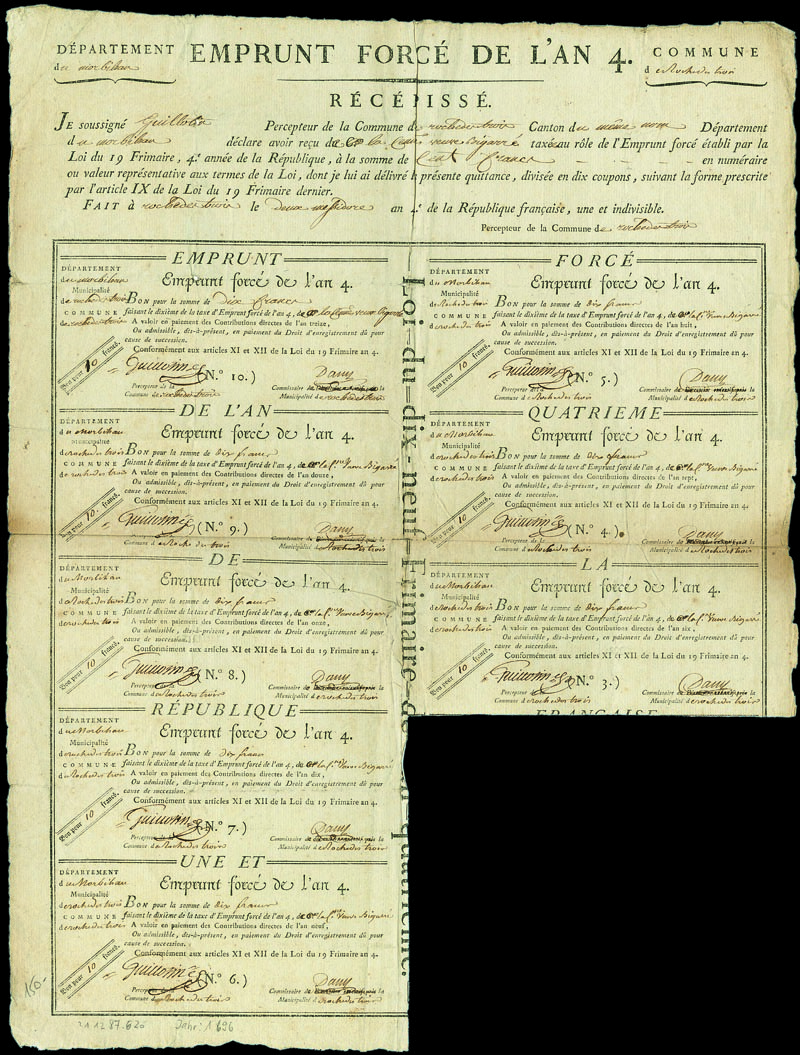 DÉPARTEMENT
du morbihan
EMPRUNT FORCÉ DE L'AN 4.
COMMUNE
d e Rochedes trois
RÉCÉPISSÉ.
JE soussigné Guillotin Percepteur de la Commune de rochedes trois Canton du même nom Département
du morbihan déclare avoir reçu de la Cenne veuve Bigarré taxée au rôle de l'Emprunt forcé établi par la
Loi du 19 Frimaire, 4.e année de la République, à la somme de Cent francs en numéraire
ou valeur représentative aux termes de la Loi, dont je lui ai délivré la présente quittance, divisée en dix coupons, suivant la forme prescrite
par l'article IX de la Loi du 19 Frimaire dernier.
FAIT à rochedes trois le deux messidore an 4.e de la République française, une et indivisible.
Percepteur de la Commune de rochedes trois
EMPRUNT
DÉPARTEMENT
du morbihan
Municipalité
de rochedes trois
COMMUNE
de rochedes trois
Emprunt forcé de l'an 4.
BON pour la somme de dix francs
faisant le dixième de la taxe d'Emprunt forcé de l'an 4, de la Cenne veuve Bigarré
A valoir en paiement des Contributions directes de l'an treize,
Ou admissible, dès-à-présent, en paiement du Droit d'enregistrement dû pour
cause de succession.
Conformément aux articles XI et XII de la Loi du 19 Frimaire an 4.
Bon pour 10 francs.
(N.º 10.)
Percepteur de la
Commune de rochedes trois
Dany
Commissaire de
Municipalité de rochedes trois
DE L'AN
DÉPARTEMENT
du Morbihan
Municipalité
de rochedes trois
COMMUNE
de rochedes trois
Emprunt forcé de l'an 4.
BON pour la somme de Dix francs
faisant le dixième de la taxe d'Emprunt forcé de l'an 4, de la Cne Veuve Bigarré
A valoir en paiement des Contributions directes de l'an douze,
Ou admissible, dès-à-présent, en paiement du Droit d'enregistrement dû pour
cause de succession.
Conformément aux articles XI et XII de la Loi du 19 Frimaire an 4.
Bon pour 10 francs.
(N.º 9.)
Percepteur de la
Commune de Roche des trois
Dany
Commissaire de
Municipalité de Rochedes trois
DE
DÉPARTEMENT
du Morbihan
Municipalité
de Rochedes trois
COMMUNE
de rochedes trois
Emprunt forcé de l'an 4.
BON pour la somme de Dix francs
faisant le dixième de la taxe d'Emprunt forcé de l'an 4, de la Cne Veuve Bigarré
A valoir en paiement des Contributions directes de l'an onze,
Ou admissible, dès-à-présent, en paiement du Droit d'enregistrement dû pour
cause de succession.
Conformément aux articles XI et XII de la Loi du 19 Frimaire an 4.
Bon pour 10 francs.
(N.º 8.)
Percepteur de la
Commune de Rochedes trois
Dany
Commissaire de
Municipalité de Rochedes trois
RÉPUBLIQUE
DÉPARTEMENT
du Morbihan
Municipalité
de rochedes trois
COMMUNE
de Rochedes trois
Emprunt forcé de l'an 4.
BON pour la somme de Dix francs
faisant le dixième de la taxe d'Emprunt forcé de l'an 4, de la Cne Veuve Bigarré
A valoir en paiement des Contributions directes de l'an dix,
Ou admissible, dès-à-présent, en paiement du Droit d'enregistrement dû pour
cause de succession.
Conformément aux articles XI et XII de la Loi du 19 Frimaire an 4.
Bon pour 10 francs.
(N.º 7.)
Percepteur de la
Commune de Rochedes trois
Dany
Commissaire de
Municipalité de Rochedes trois
UNE ET
DÉPARTEMENT
du Morbihan
Municipalité
de rochedes trois
COMMUNE
de rochedes trois
Emprunt forcé de l'an 4.
BON pour la somme de Dix francs
faisant le dixième de la taxe d'Emprunt forcé de l'an 4, de la Cne Veuve Bigarré
A valoir en paiement des Contributions directes de l'an neuf,
Ou admissible, dès-à-présent, en paiement du Droit d'enregistrement dû pour
cause de succession.
Conformément aux articles XI et XII de la Loi du 19 Frimaire an 4.
Bon pour 10 francs.
(N.º 6.)
Percepteur de la
Commune de Rochedes trois
Dany
Commissaire de
Municipalité de Rochedes trois
Loi du dix-neuf Frimaire de quatrième.
FORCÉ
DÉPARTEMENT
du Morbihan
Municipalité
de Rochedes trois
COMMUNE
de rochedes trois
Emprunt forcé de l'an 4.
BON pour la somme de Dix francs
faisant le dixième de la taxe d'Emprunt forcé de l'an 4, de la Cne Veuve Bigarré
A valoir en paiement des Contributions directes de l'an huit,
Ou admissible, dès-à-présent, en paiement du Droit d'enregistrement dû pour
cause de succession.
Conformément aux articles XI et XII de la Loi du 19 Frimaire an 4.
Bon pour 10 francs.
(N.º 5.)
Percepteur de la
Commune de Rochedes trois
Dany
Commissaire de
Municipalité de Rochedes trois
QUATRIEME
DÉPARTEMENT
du Morbihan
Municipalité
de rochedes trois
COMMUNE
de rochedes trois
Emprunt forcé de l'an 4.
BON pour la somme de Dix francs
faisant le dixième de la taxe d'Emprunt forcé de l'an 4, de la Cne Veuve Bigarré
A valoir en paiement des Contributions directes de l'an sept,
Ou admissible, dès-à-présent, en paiement du Droit d'enregistrement dû pour
cause de succession.
Conformément aux articles XI et XII de la Loi du 19 Frimaire an 4.
Bon pour 10 francs.
(N.º 4.)
Percepteur de la
Commune de Rochedes trois
Dany
Commissaire de
Municipalité de Rochedes trois
LA
DÉPARTEMENT
du Morbihan
Municipalité
de Rochedes trois
COMMUNE
de Rochedes trois
Emprunt forcé de l'an 4.
BON pour la somme de Dix francs
faisant le dixième de la taxe d'Emprunt forcé de l'an 4, de la Cne Veuve Bigarré
A valoir en paiement des Contributions directes de l'an six,
Ou admissible, dès-à-présent, en paiement du Droit d'enregistrement dû pour
cause de succession.
Conformément aux articles XI et XII de la Loi du 19 Frimaire an 4.
Bon pour 10 francs.
(N.º 3.)
Percepteur de la
Commune de Rochedes trois
Dany
Commissaire de
Municipalité de Rochedes trois
FRANÇAISE
150.-
Jahr: 1696